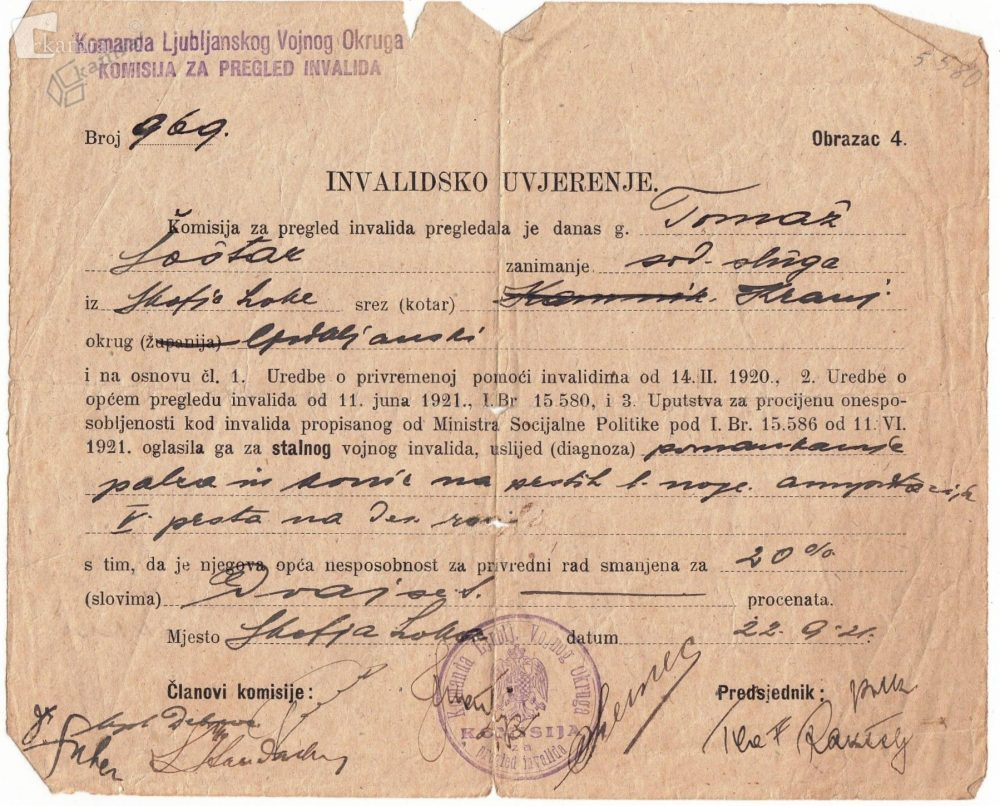 Komanda Ljubljanskog Vojnog Okruga
KOMISIJA ZA PREGLED INVALIDA
5580
Broj 969.
Obrazac 4.
INVALIDSKO UVJERENJE.
Komisija za pregled invalida pregledala je danas g. Tomaž
Šoštar zanimanje sod. sluga
iz Škofja Loke srez (kotar) Kamnik. Kranj.
okrug (županija) Ljubljanski
i na osnovu čl. 1. Uredbe o privremenoj pomoći invalidima od 14. II. 1920., 2. Uredbe o
općem pregledu invalida od 11. juna 1921., I. Br 15 580, i 3. Uputstva za procijenu onespo-
sobljenosti kod invalida propisanog od Ministra Socijalne Politike pod I. Br. 15.586 od 11. VI.
1921. oglasila ga za stalnog vojnog invalida, uslijed (diagnoza) pomankanje
palca in konic na prstih l. noge. amputacija
V. prsta na des. roki
s tim, da je njegova opća nesposobnost za privredni rad smanjena za 20%
(slovima) Dvajset. procenata.
Mjesto Škofja Loka datum 22-9-21.
Članovi komisije: Predsjednik:
Komanda Ljublj. Vojnog Okruga
KOMISIJA
za
pregled invalida